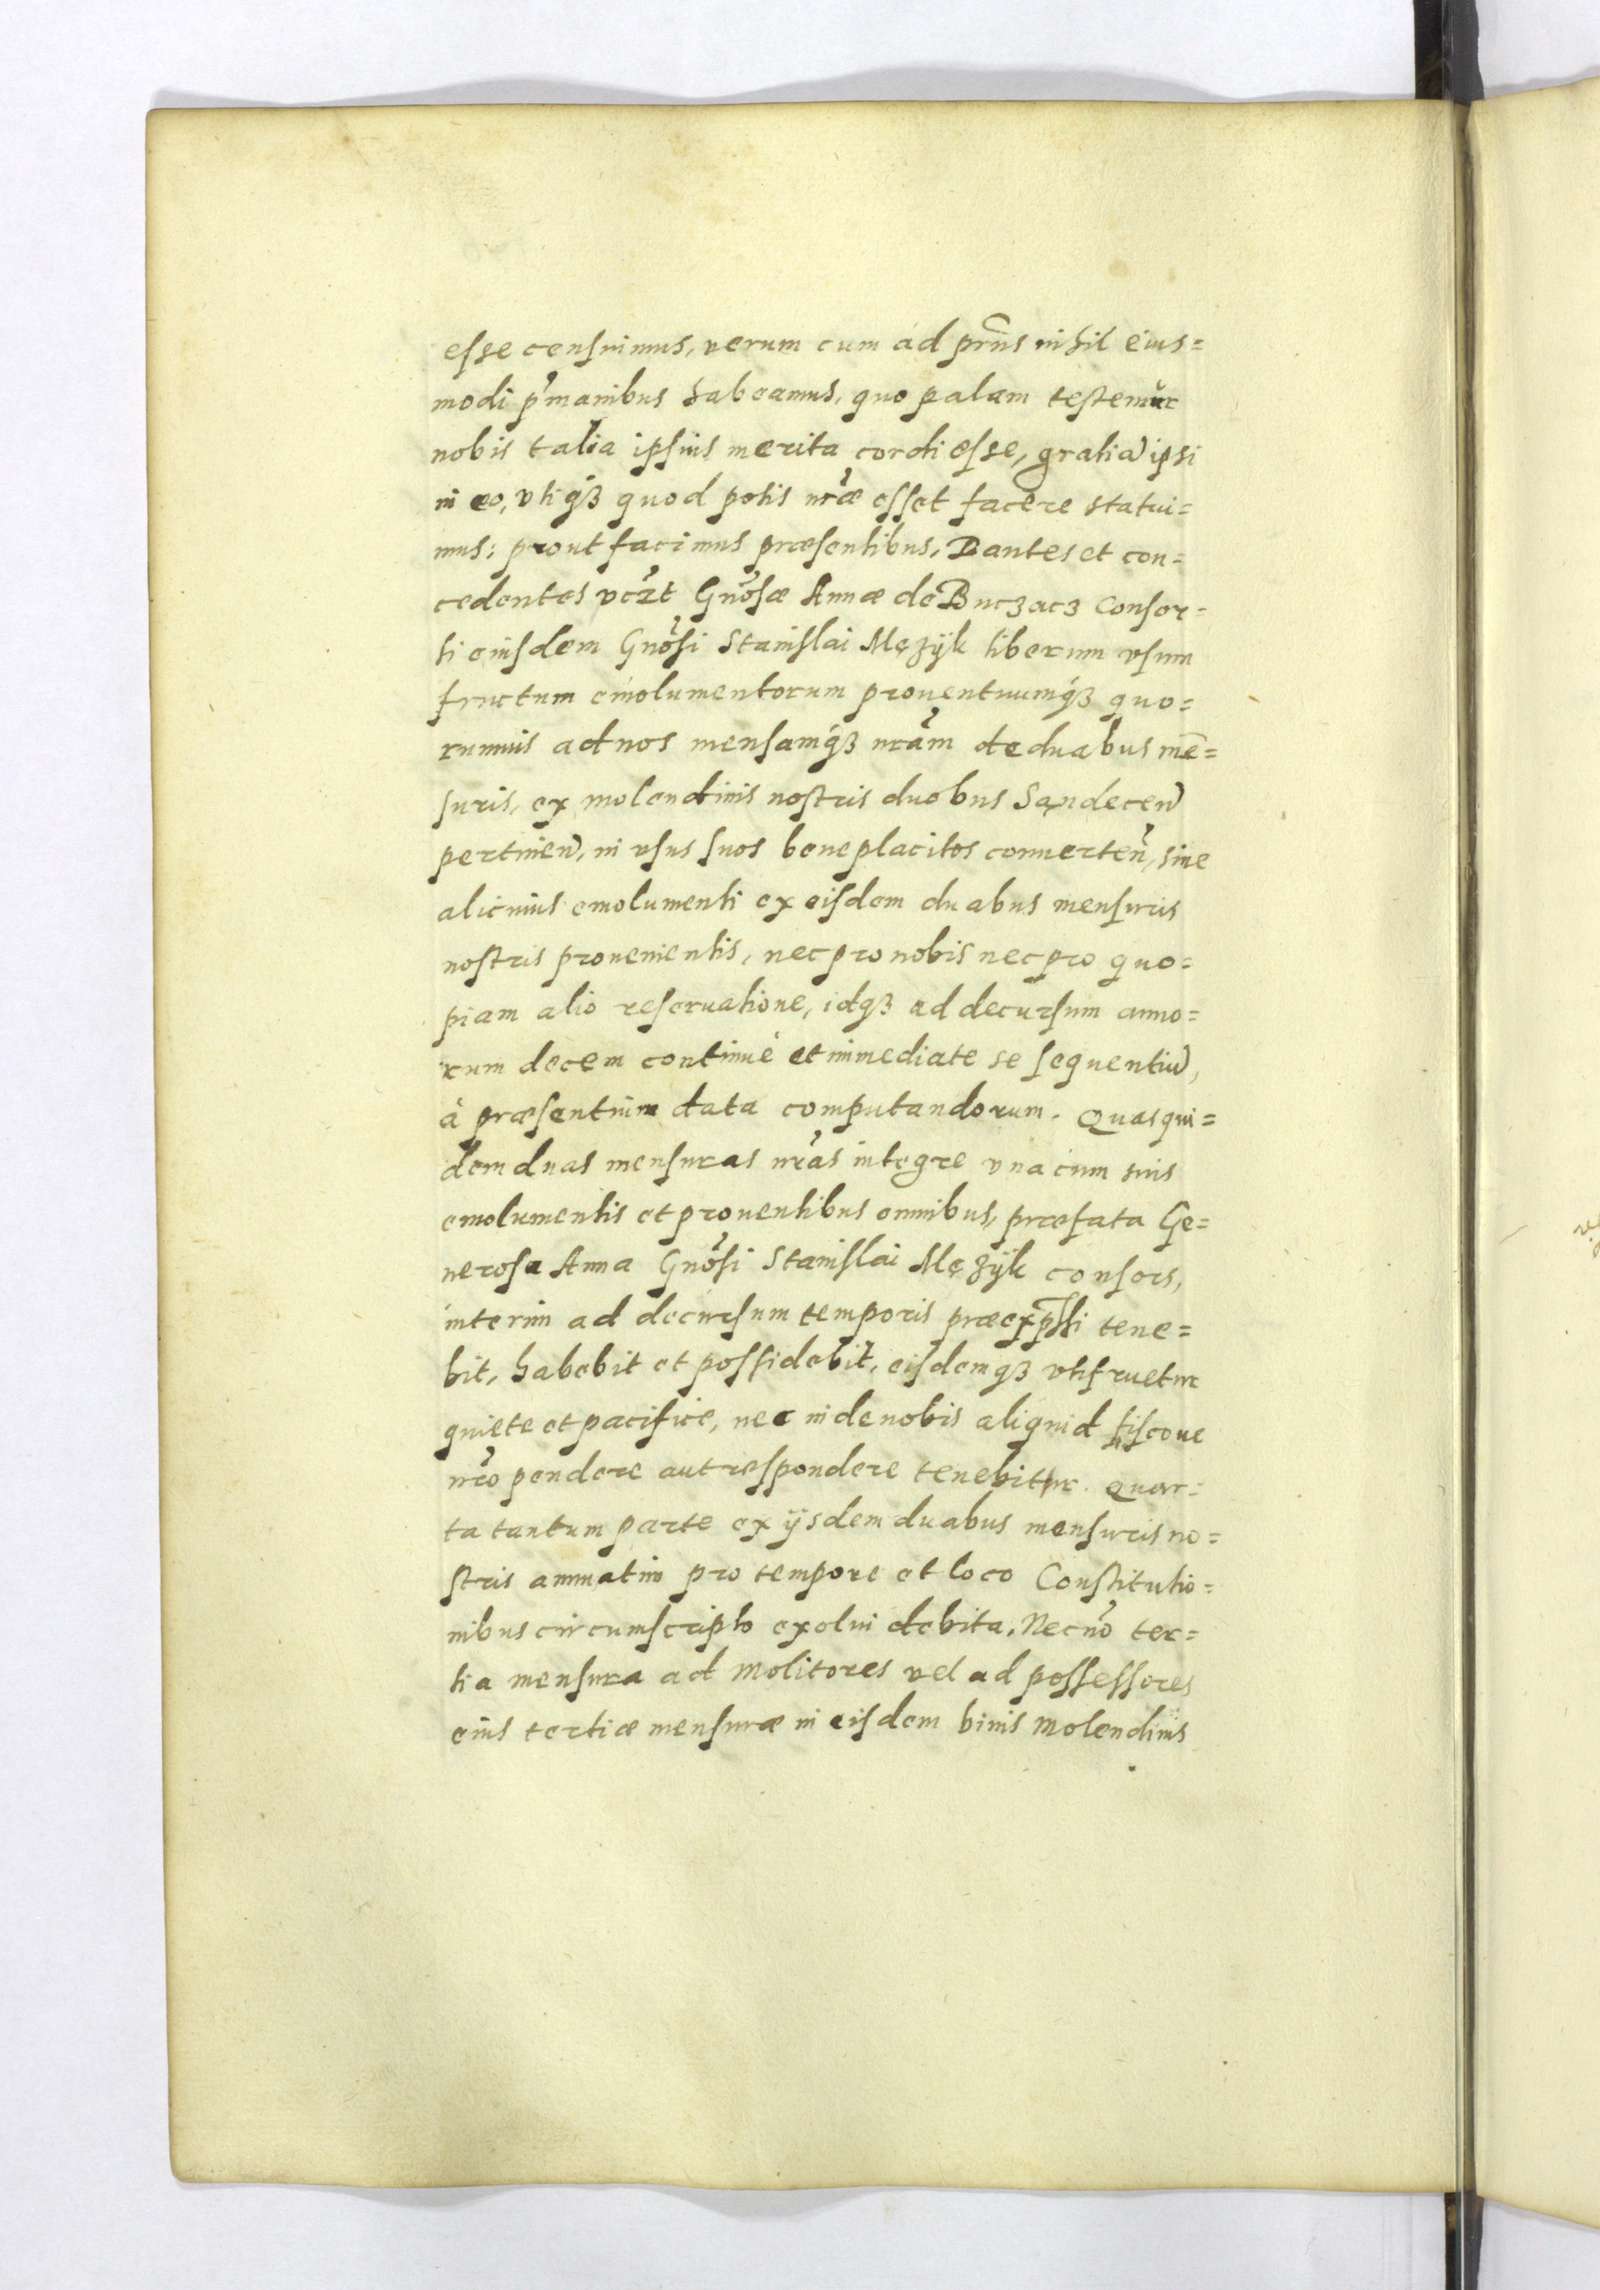 esse censuimus, verum cum ad prñs nihil eius=
modi p̃manibus habeamus, quo palam testemur
nobis talia ipsius merita cordi esse, gratiã ipsi
in eo, vtiq́ꝫ quod potis nr̃æ esset facere statui=
mus: prout facimus præsentibus, Dantes et con=
cedentes vt̃ Gnõsæ Annæ de Buczacz Consor=
ti eiusdem Gnõsi Stanislai Mężÿk liberum vsum
fructum emolumentorum prouentuumq́ꝫ quo=
rumuis ad nos mensamq́ꝫ nrãm de duabus mẽ=
suris, ex molendinis nostris duobus Sandeceñ
pertineñ, in vsus suos beneplacitos conuerteñ, sine
alicuius emolumenti ex eisdem duabus mensuris
nostris prouenientis, nec pro nobis nec pro quo=
piam alio reseruatione, idqꝫ ad decursum anno=
rum decem continuè et immediate se sequentiũ,
à præsentium data computandorum. Quasqui=
dem duas mensuras nrãs integre vna cum suis
emolumentis et prouentibus omnibus, præfata Ge=
nerosa Anna Gnõsi Stanislai Mężÿk consors,
interim ad decursum temporis præexp̃ssi tene=
bit, habebit et possidebit, eisdemqꝫ vtifruetur
quiete et pacifice, nec inde nobis aliquid fiscoue
nrõ pendere aut respondere tenebitur. Quar=
ta tantum parte ex ijsdem duabus mensuris no=
stris annuatim pro tempore et loco Constitutio=
nibus circumscripto exolui debita. Necnõ ter=
tia mensura ad Molitores vel ad possessores
eius tertiæ mensuræ in eisdem binis Molendinis